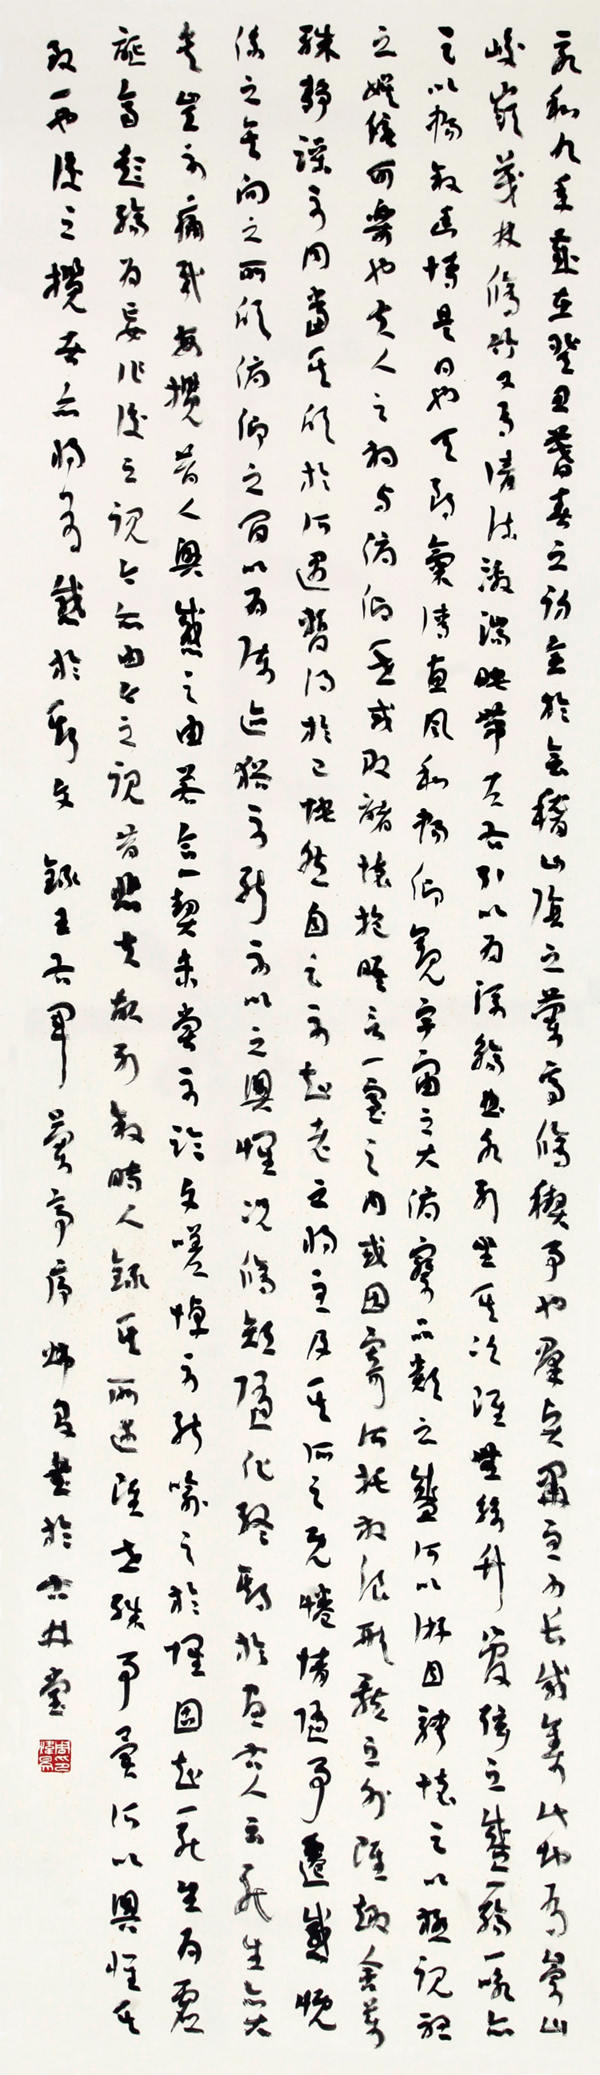 永和九年歲在癸丑暮春之初會於會稽山陰之蘭亭脩禊事也羣賢畢至少長咸集此地有崇山
峻嶺茂林脩竹又有清流激湍映帶左右引以為流觴曲水列坐其次雖無絲竹管弦之盛一觴一詠亦
足以暢敘幽情是日也天朗氣清惠風和暢仰觀宇宙之大俯察品類之盛所以遊目騁懷足以極視聽
之娛信可樂也夫人之相與俯仰一世或取諸懷抱晤言一室之內或因寄所託放浪形骸之外雖趣舍萬
殊靜躁不同當其欣於所遇暫得於己快然自足不知老之將至及其所之既惓情隨事遷感慨
係之矣向之所欣俯仰之間以為陳迹猶不能不以之興懷況脩短隨化終期於盡古人云死生亦大
矣豈不痛哉每攬昔人興感之由若合一契未嘗不臨文嗟悼不能喻之於懷固知一死生為虛
誕齊彭殤為妄作後之視今亦由今之視昔悲夫故列敘時人錄其所述雖世殊事異所以興懷其
致一也後之攬者亦將有感於斯文 錄王右軍蘭亭序 書於古林堂